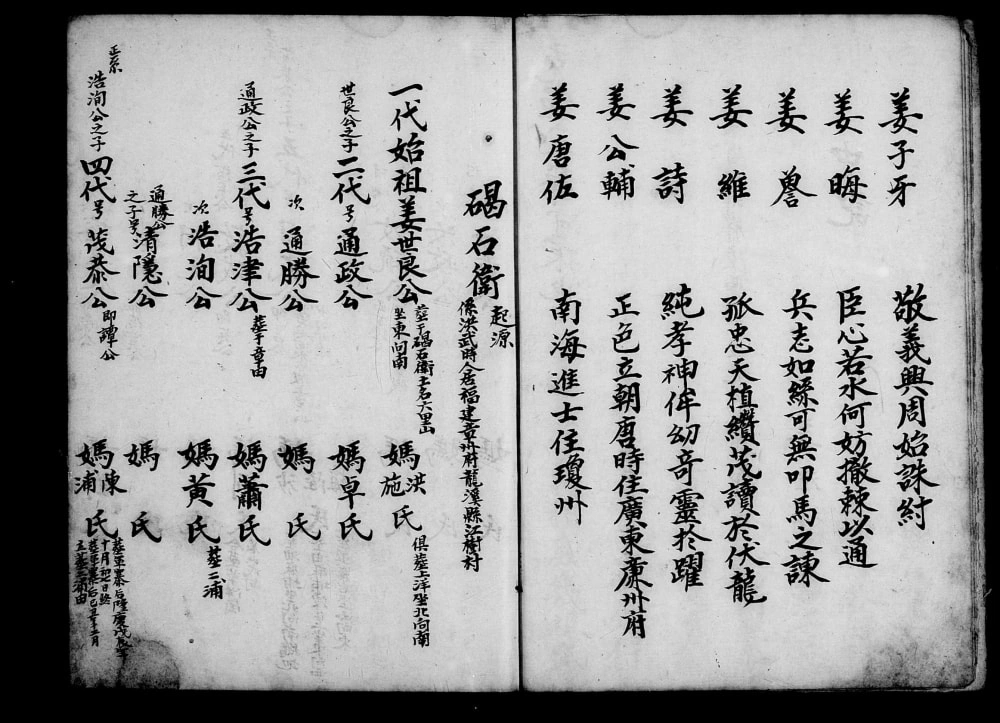 姜子牙 敬義興周始誅紂
姜晦 臣心若水何妨撤棘以通
姜譽 兵志如絲可無叩馬之諫
姜維 孤忠天植纘茂讀於伏龍
姜詩 純孝神侔幼奇靈於躍
姜公輔 正色立朝唐時住廣東廉州府
姜唐佐 南海進士住瓊州
碣石衛起源
係洪武時人居福建章州府龍溪縣江樹村
一代始祖姜世良公 葬于碣石衛土名六里山 坐東向南 媽洪施氏 俱葬上洋坐北向南
世良公之子二代号通政公 媽卓氏
次通勝公 媽氏
通政公之子三代号浩津公 葬于章由 媽蕭氏
次浩洵公 媽黃氏 葬三浦
通勝公之子号清隱公 媽氏
正系
浩洵公之子四代号茂恭公即譚公 媽陳浦氏